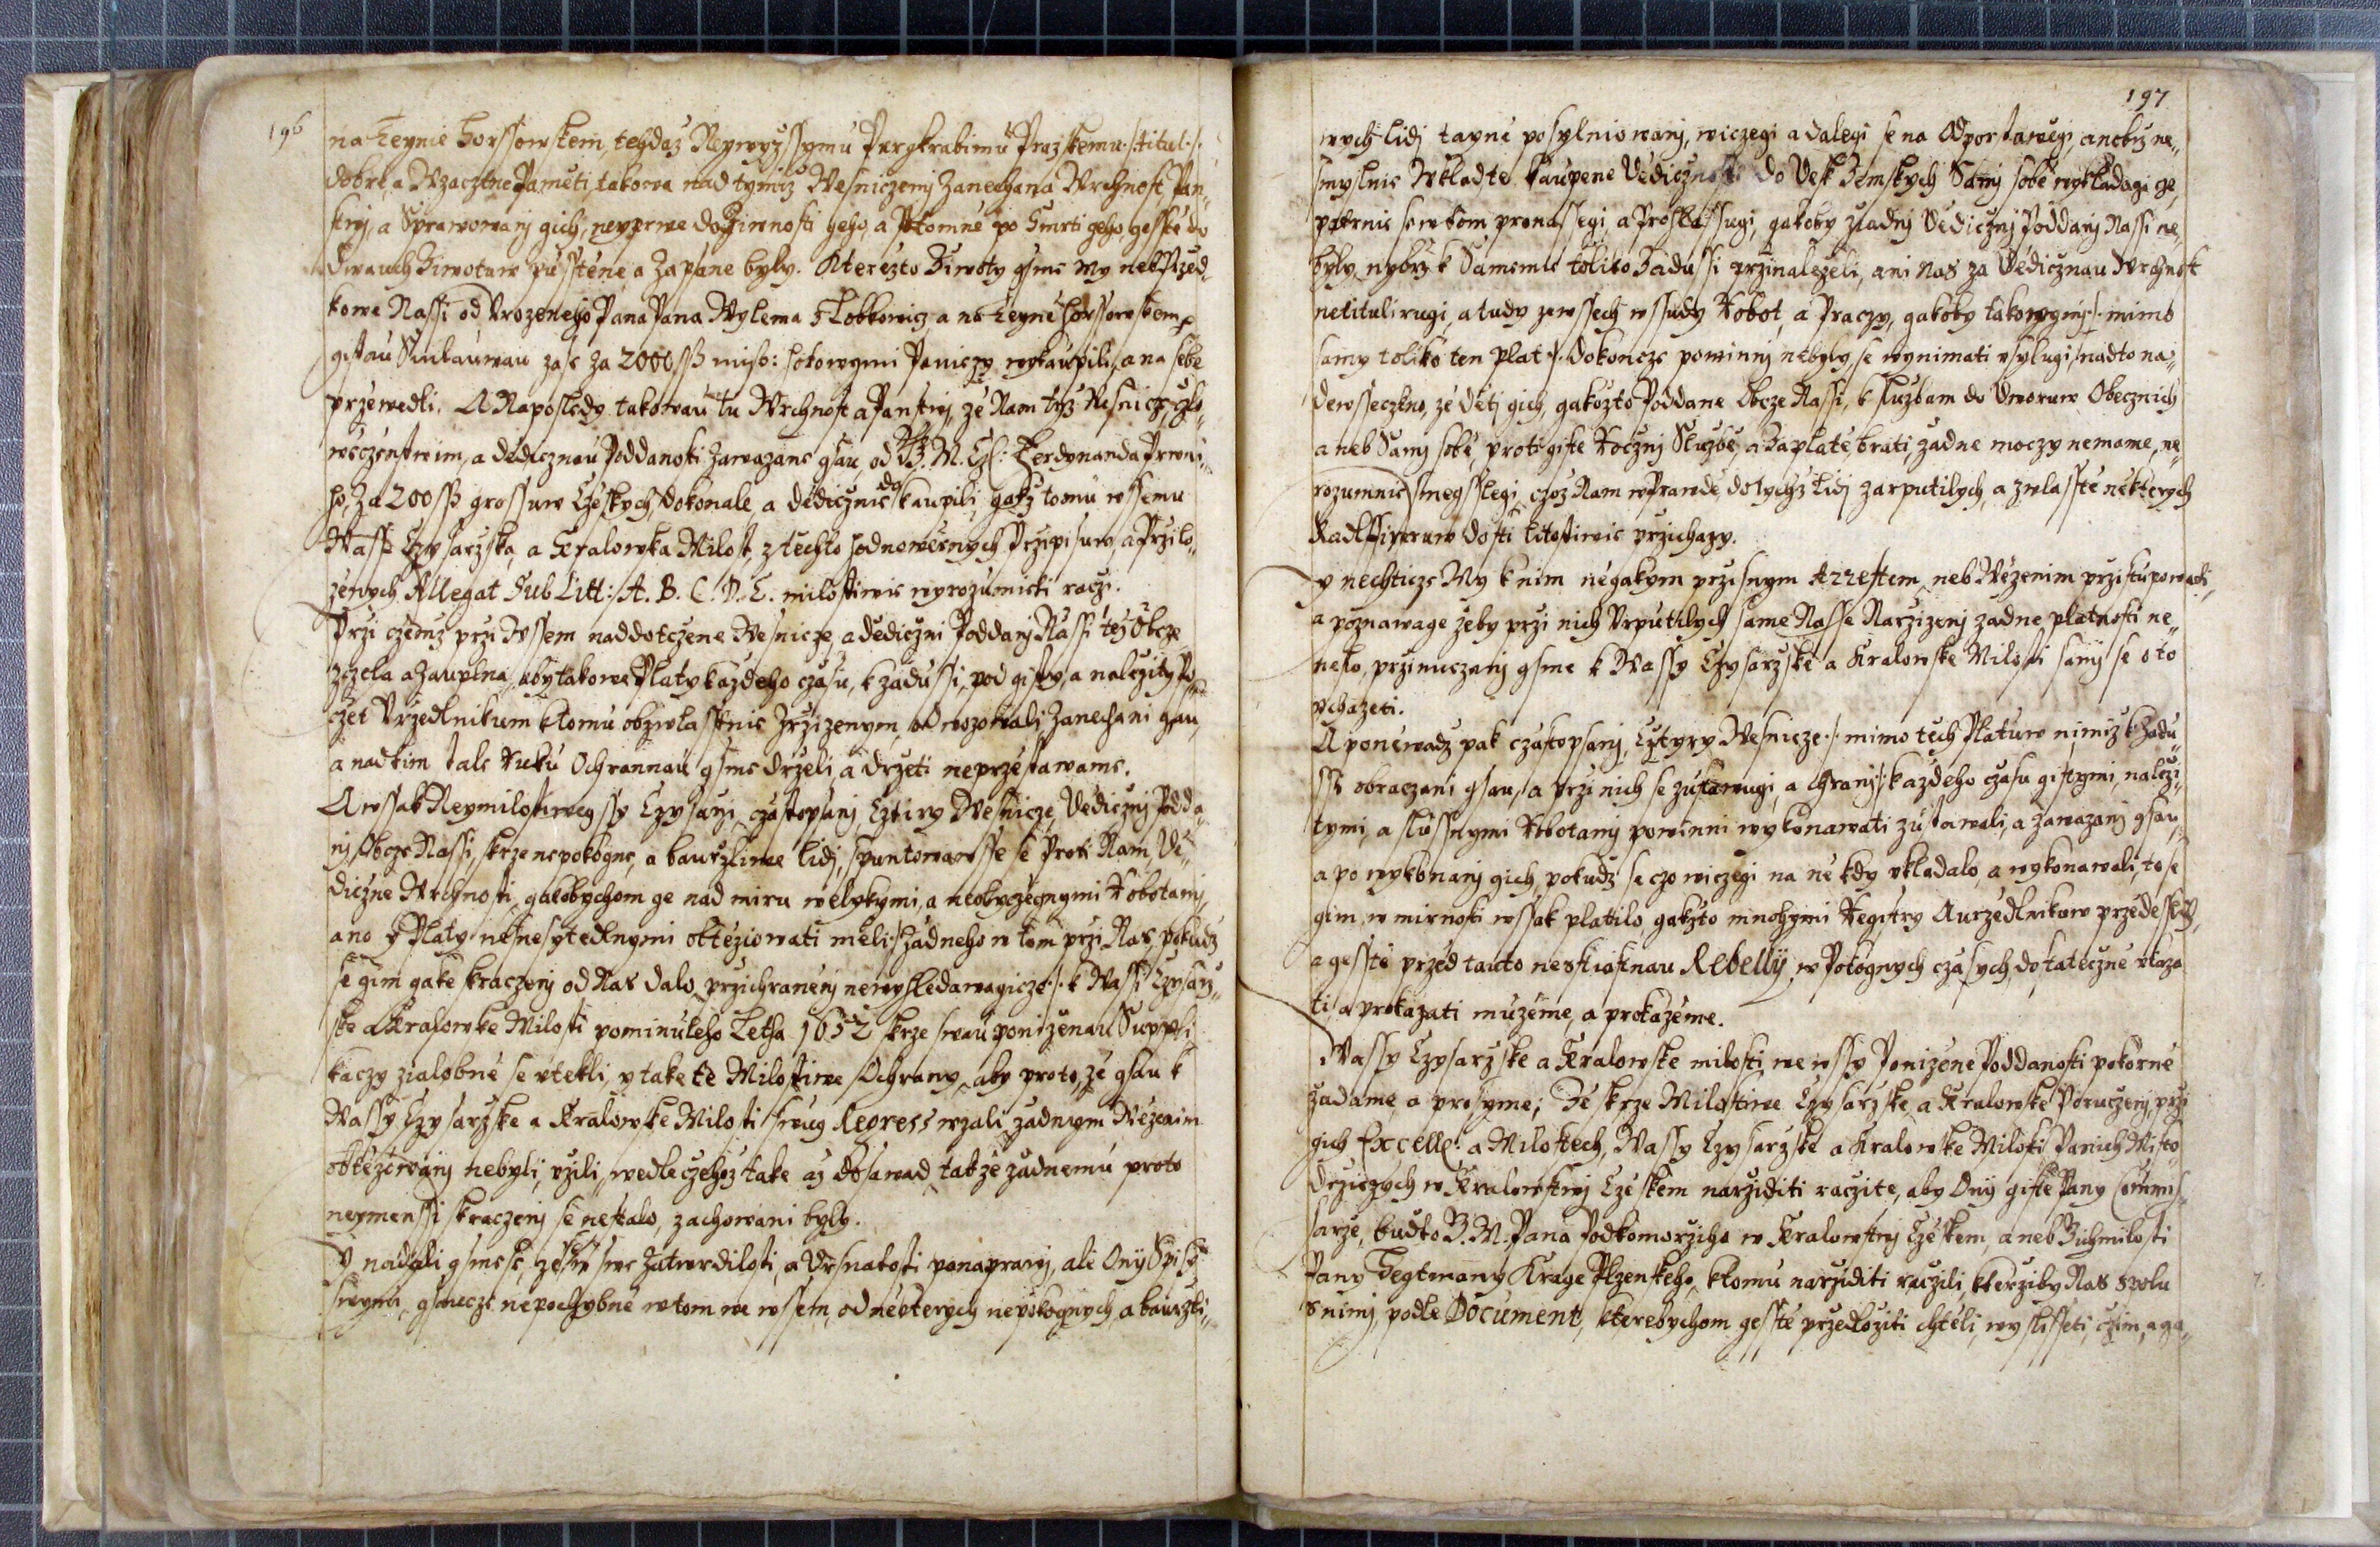 196
na Teynie Horssowskem, tehdaz Neywyzssymu Purgkrabimu Prazskemu ./. titul ./.
dobre, a Wzacztne Pameti, takowa nad tymiz Wesniczemi Zanechana Wrchnost, Pan„
stwj, a Sprawowanj gich, neyprwe do Ziwnosti geho, a Potomne po Smrti geho gesste do
dwauch Ziwotuw pusstene a Zapsane byly. Kterezto Ziwoty gsme my neb Przed„
kowe Nassi od Urozeneho Pana Pana Wylema z Lobkowicz a na Teyně Horssowskem
gistau Smlauwau zase za 2000 ss miss: hotowymi Penieczy wykaupili, a na sebe
przewedli. A Naposledy takowau tu Wrchnost a Panstwj, ze Nam tyz Wesnicze, czlo„
weczenstwim, a dedicznau Poddanosti zawazane gsau, od G. M. Cys: Ferdynanda Prwni„
ho, Za 200 ss grossuw Czeskych, dokonale a dedicznie do kaupili, gakz tomu wssemu
Wasse Czysarzska, a Kralowska Milost, z techto hodnowernych Przipisuw, a Przilo„
zenych Allegat Sub Litt: A. B. C. D. E. milostiwie wyrozumieti raczi.
Przi czemz przi Wssem naddotczene Wesnicze, a dediczni Poddanj Nassi tez Obcze
zczela a zauplna, aby takowe Platy kazdeho czasu, k zadussi, pod gisty, a nalezity Po„
czet Urzednikum k tomu obzwlasstnie Zrzizenym, odwozowali, Zanechani gsau,
a nad tim stale Ruku Ochrannau gsme drzeli, a drzeti neprzestawame.
A wssak Neymilostiwegssy Czysarzi, czastopsanj Cztirzy Wesnicze, Dedicznj Podda„
nj Obcze Nassi, skrze nepokogne, a baurzliwe lidj, spuntowawsse se Proti Nam, De„
diczne Wrchnosti, gakobychom ge nad miru welykymi, a neobyczegnymi Robotami,
ano y Platy nesnesytedlnymi obtezowati meli ./. zadneho w tom przi Nas, pokudz
se gim gake kraczenj od Nas dalo przichranenj newyhledawagicze ./. k Wassi Czysarz„
ske a Kralowske Milosti pominuleho Letha 1652 skrze swau ponizenau Suppli„
kaczy zialobne se utekli, y take te Milostiwe Ochrany, aby proto, ze gsau k
Wassy Czysarzske a Kralowske Milosti swug Regress wzali, zadnym Wezenim
obtezowanj nebyli, uzili, wedle czehoz take az dosawad, takze zadnemu proto
neymenssi skraczenj se nestalo, zachowani byly.
Y nadali gsme se, ze se w swe Zatwrdilosti, a Wsnatosti ponaprawj, ale Onj Spisy
swymi, gsucze nepochybne w tom we wssem, od nekterych nepokognych, a baurzli„
197
wych lidj tayne posylniowanj, wiczegi a dalegi se na Odpor stawegi, anobrz ne„
smyslnie Wklad te kaupene Dedicznosti do Desk Zemskych Samj sobe wykladagi ge,
potornie se w tom pronassegi, a prohlassugi, gakoby ziadnj Dedicznj Poddanj Nassi ne„
byly, nybrz k Samemu toliko Zadussi przinalezeli, ani Nas za Dedicznau Wrchnost
netitulirugi, a tudy ze wssech wssudy Robot, a Praczy, gakoby takowymi ./. mimo
samy toliko ten plat ./. dokoncze powinnj nebyly, se wynimati usylugi, nadto na„
dewsseczkno, ze deti gich, gakozto Poddane Obcze Nassi, k sluzbam do Dworuw Obecznich
aneb Samj sobe, proti giste Rocznj Sluzbe, a Zaplate brati, zadne moczy nemame, ne„
rozumnie smegsslegi, czoz Nam w prawde, do tychz lidj zarputilych, a zwlasste nekterych
Radlssiwruw dosti litostiwie przichazy.
Y nechticze My k nim negakym przisnym Arrestem, neb Wezenim przistupowati,
a poznawage zeby przi nich Urputilych same Nasse Narzizenj zadne platnosti ne„
neslo, przinuczenj gsme k Wassy Czysarzske a Kralowske Milosti samj se o to
uchazeti.
A ponewadz pak czastopsanj, Cztyry Wesnicze ./. mimo tech Platuw, nimiz k Zadu„
ssi obraczani gsau, a przi nich se zustawugi, a chranj ./. kazdeho czasu gistymi, nalezi„
tymi, a slussnymi Robotamj powinni wykonawati zustawali, a zawazanj gsau,
a po wykonanj gich, pokudz se czo wiczegi na ne kdy ukladalo, a wykonawali, to se
gim w mirnosti wssak platilo, gakzto mnohymi Regstry Aurzednikuw przedesslych,
a gesste przed tauto nesstiastnau Rebellij, w Pokognych czasych, dostateczne ukaza
ti a prokazati muzeme, a prokazeme.
Wassy Czysarzske a Kralowske milosti, we wssy Ponizene Poddanosti pokorne
zadame, a prosyme; Ze skrze Milostiwe Czysarzske, a Kralowske Poruczenj, przi
gich Excell: a Milostech, Wassy Czysarzske a Kralowske Milosti Panich Misto„
drziczych w Kralowstwj Czeskem narziditi raczite, aby Onj giste Pany Commis„
sarze, budto G. M. Pana Podkomorziho w Kralowstwj Czeskem, aneb Gichmilosti
Pany Hegtmany Krage Plzenskeho, k tomu narziditi raczili, kterziby Nas spolu
s nimj, podle Document, kterebychom gesste przedloziti chteli, wyslisseti, czim, a ga„